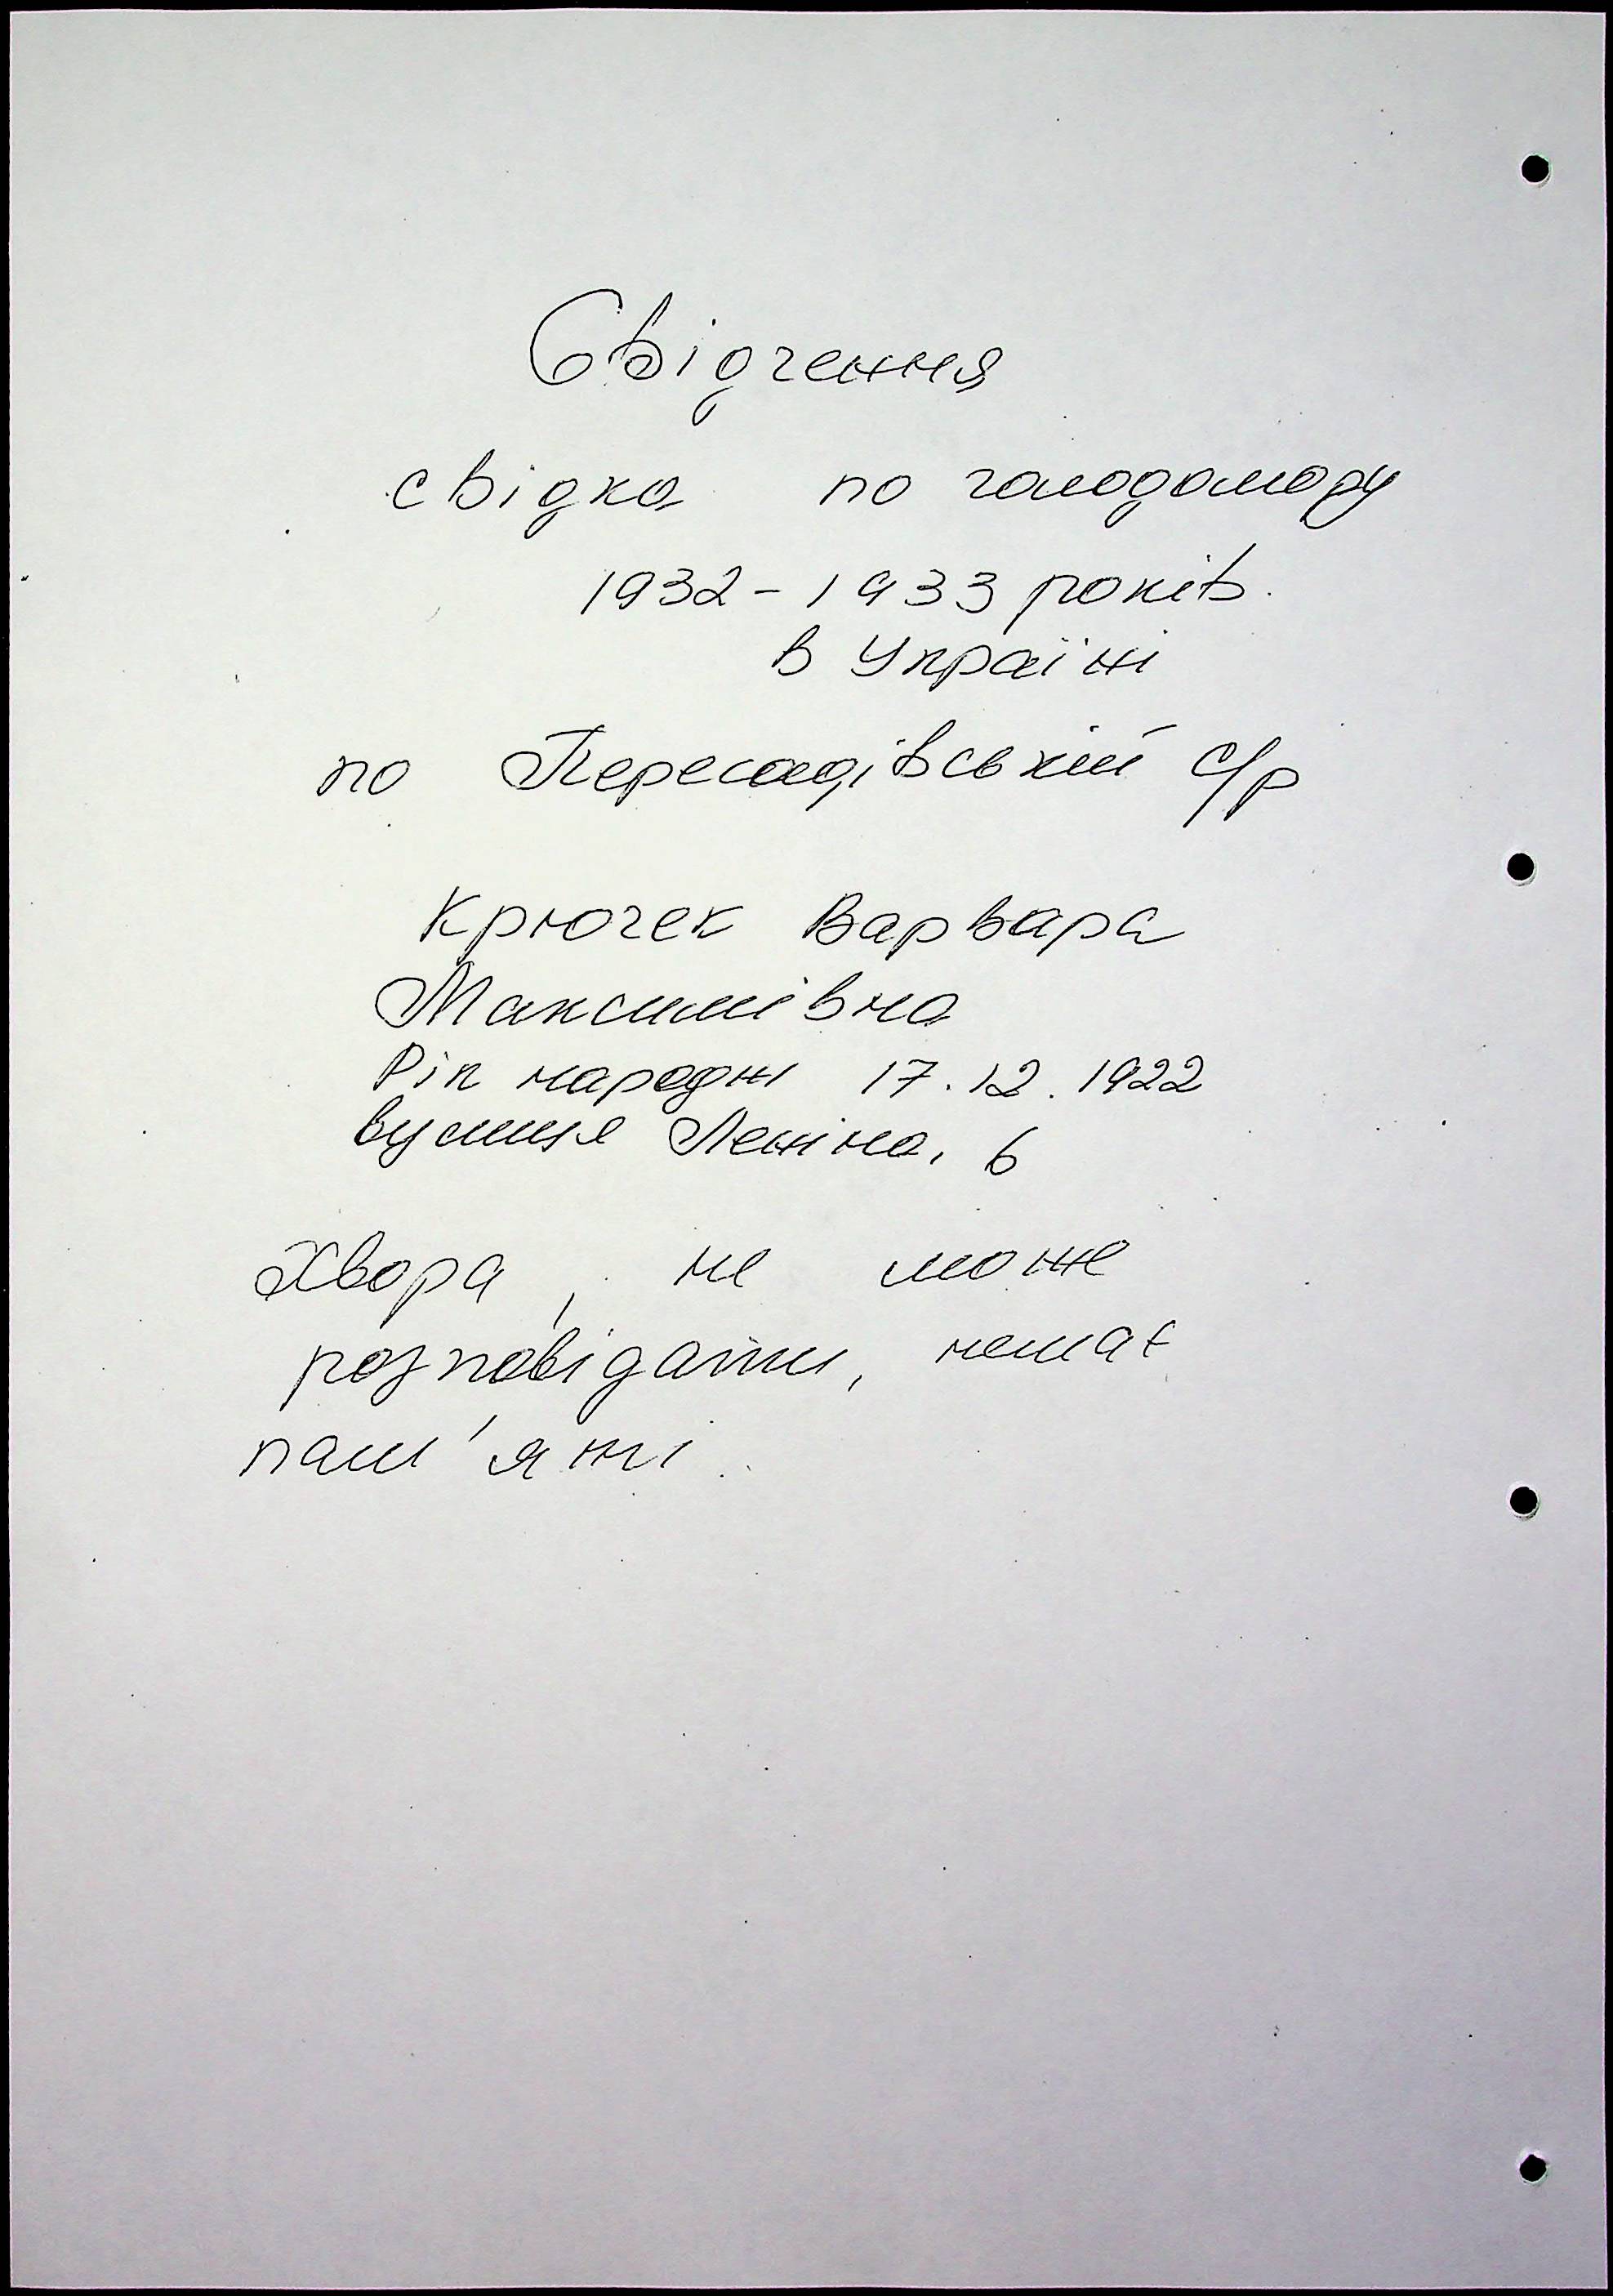 Свідчення
свідка по голодомору
1932-1933 років.
в Україні
по Пересадівській с/р
Крючек Варвара
Максимівна
Рік народж 17.12.1922
вулиця Леніна, 6
Хвора, не може
розповідати, немає
пам'яті.